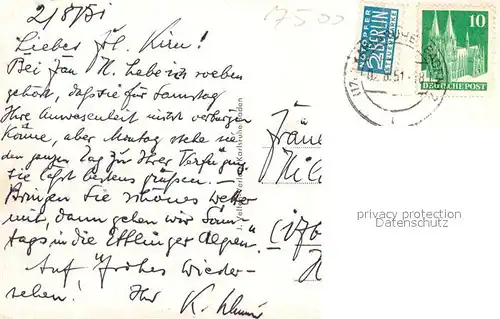 2/8/51
7500
Lieber Frl. Kirn!
Bei Frau H. habe ich soeben
gehört, daß sie für Samstag
Ihre Anwesenheit nicht verbürgen
könne, aber Montag stehe sie
den ganzen Tag zu Ihrer Verfügung.
Sie läßt bestens grüßen. —
Bringen Sie schönes Wetter
mit, dann gehen wir Sonn-
tags in die Ettlinger "Alpen".
Auf frohes Wieder-
sehen! Ihr K.
NOTOPFER
2 BERLIN
STEUERMARKE
10
DEUTSCHE POST
51
Karlsruhe-Baden
(17b)
privacy protection
Datenschutz